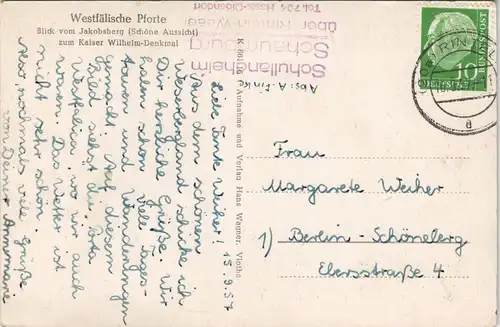 Westfälische Pforte
Blick vom Jakobsberg (Schöne Aussicht)
zum Kaiser Wilhelm-Denkmal
Schullandheim
Schaumburg
über Rinteln-Weser
Tel. 704 Hess.-Oldendorf
Abs: A. Finke
15.9.57
Liebe Tante Weiher!
Aus dem schönen
Weserbergland schicke ich
Dir herzliche Grüße. Wir
haben schon viel Tages-
touren und Wanderungen
gemacht. Auf diesem
Bild siehst du die Porta
Westfalica, wo wir auch
waren. Das Wetter ist
nicht sehr schön.
Nun nochmals viele Grüße
von Deiner Annemarie
Aufnahme und Verlag Hans Wagner, Vlotho
DEUTSCHE
BUNDESPOST
10
RINTELN
a
Frau
Margarete Weiher
1) Berlin-Schöneberg
Ebersstraße 4